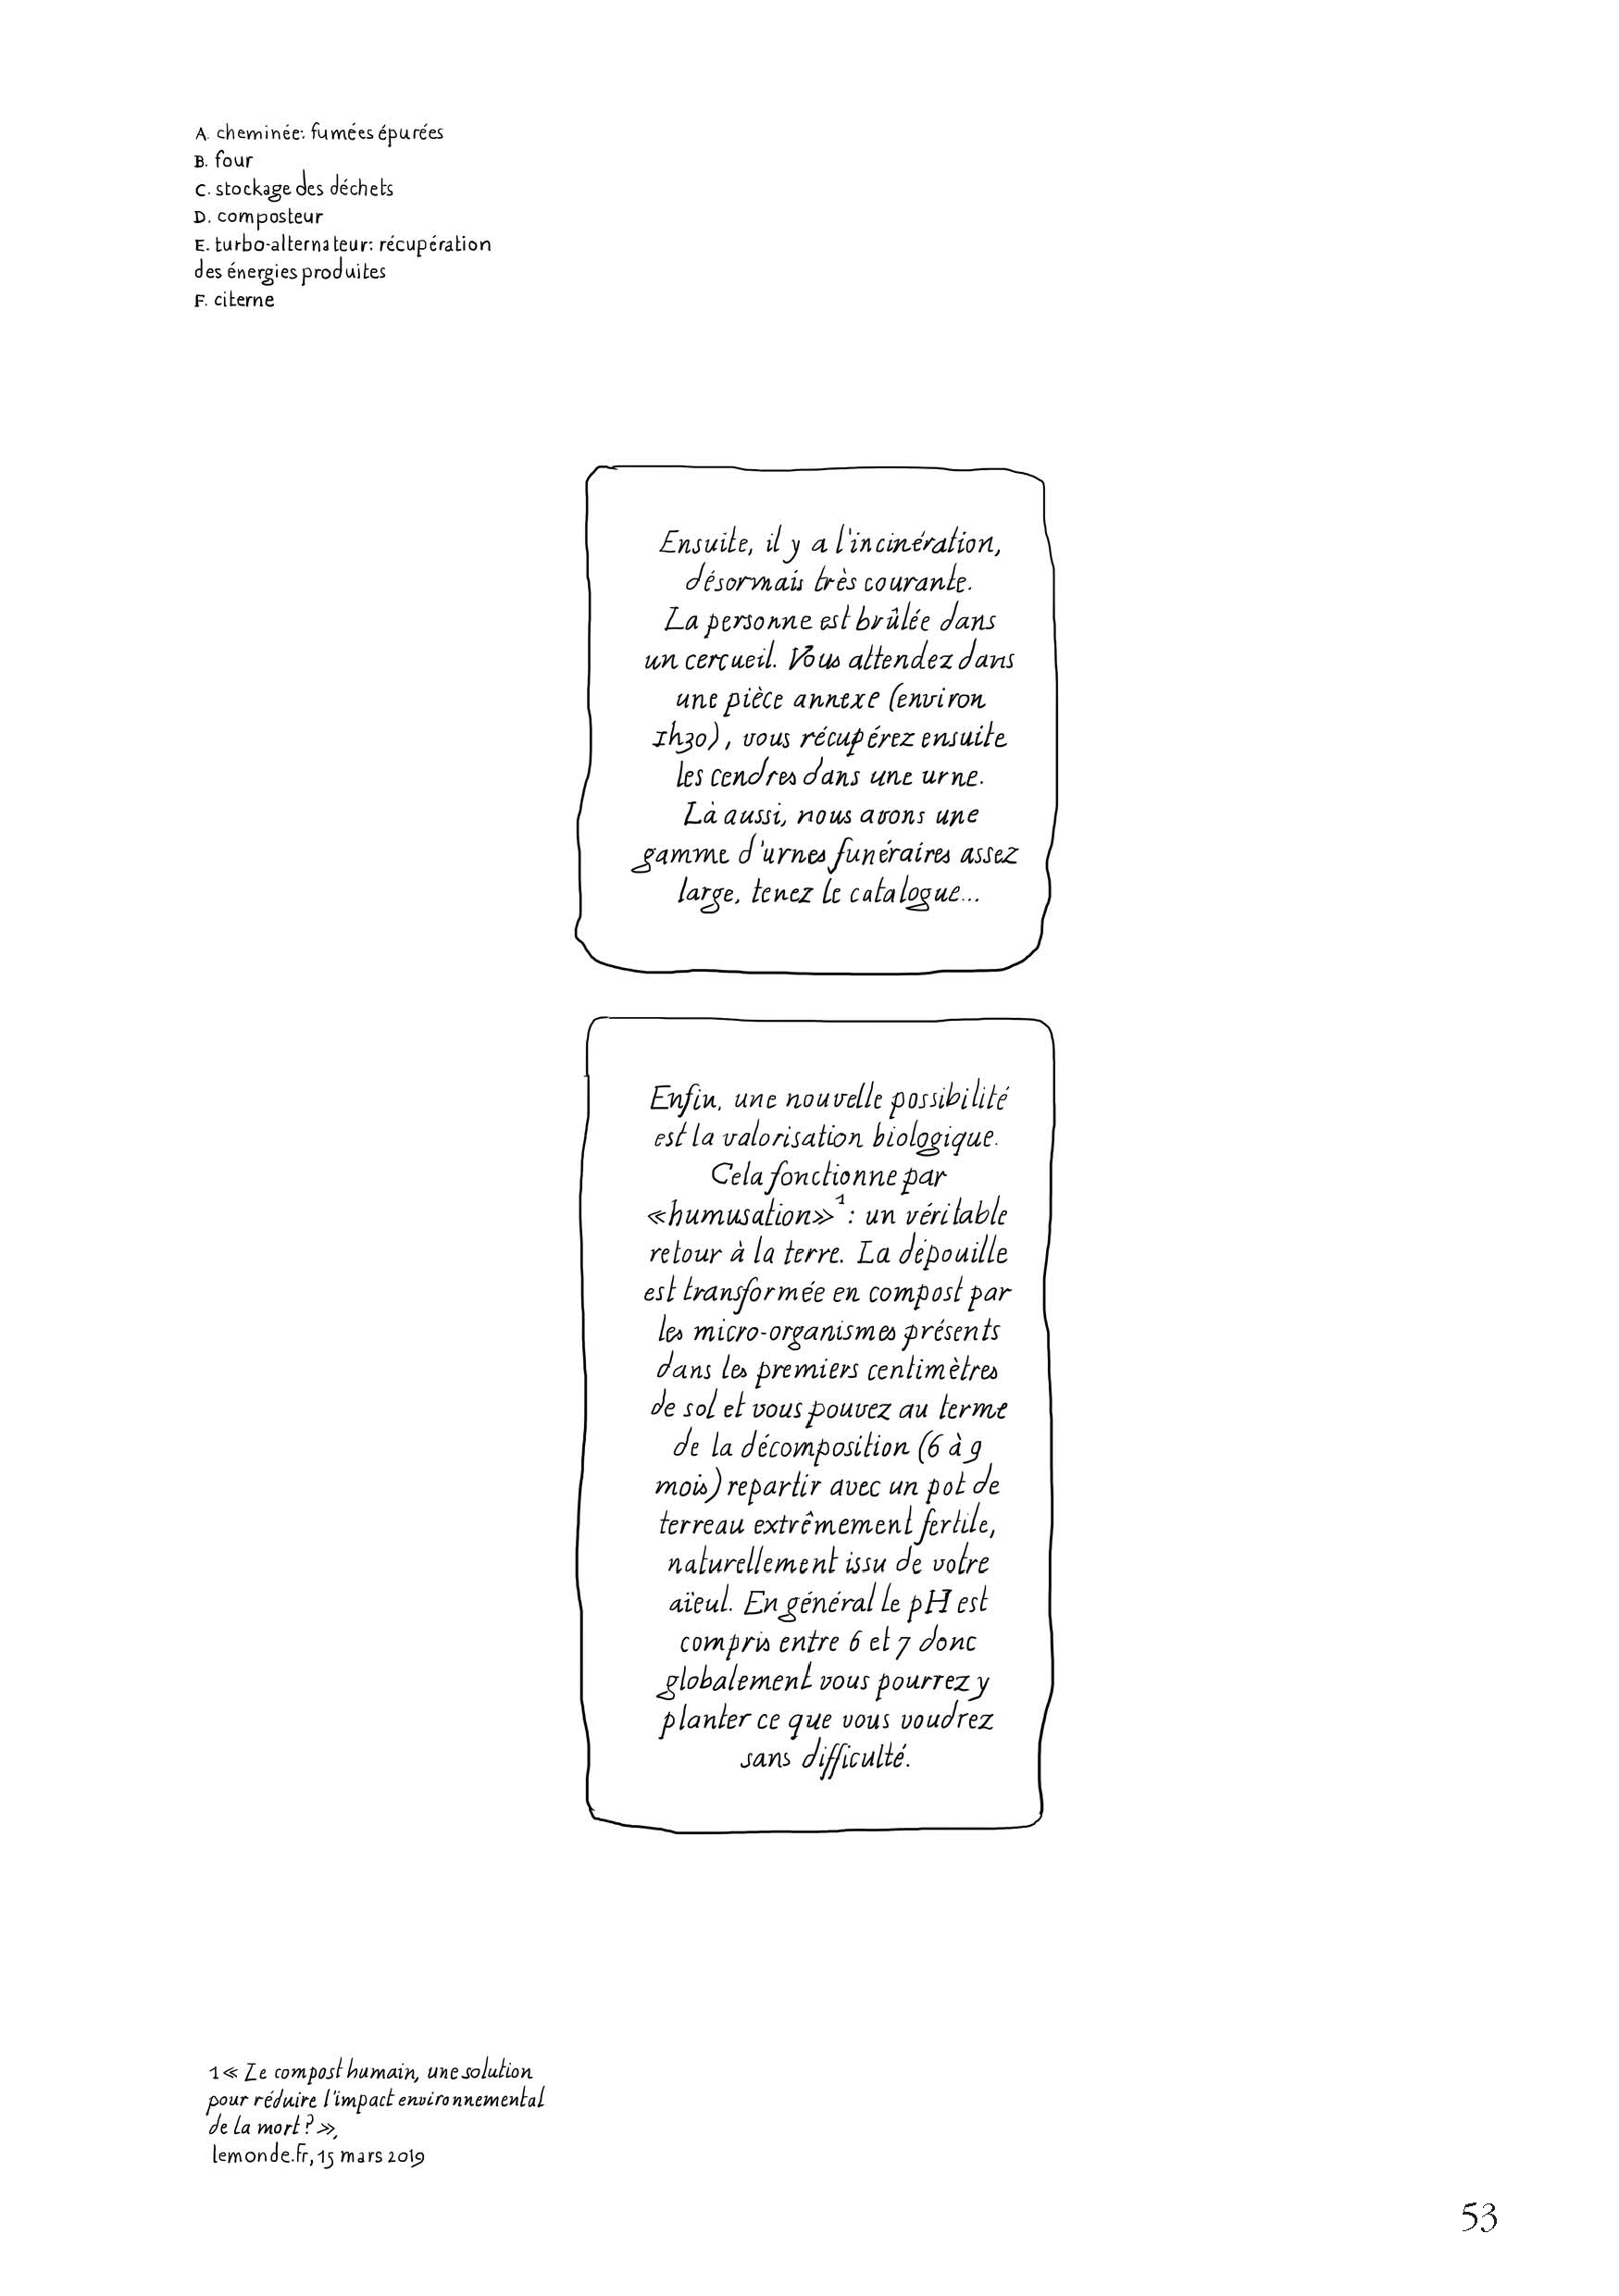 A. cheminée: fumées épurées
B. four
C. stockage des déchets
D. composteur
E. turbo-alternateur: récupération
des énergies produites
F. citerne
Ensuite, il y a l'incinération,
désormais très courante.
La personne est brûlée dans
un cercueil. Vous attendez dans
une pièce annexe (environ
1h30), vous récupérez ensuite
les cendres dans une urne.
Là aussi, nous avons une
gamme d'urnes funéraires assez
large, tenez le catalogue...
Enfin, une nouvelle possibilité
est la valorisation biologique.
Cela fonctionne par
«humusation»¹ : un véritable
retour à la terre. La dépouille
est transformée en compost par
les micro-organismes présents
dans les premiers centimètres
de sol et vous pouvez au terme
de la décomposition (6 à 9
mois) repartir avec un pot de
terreau extrêmement fertile,
naturellement issu de votre
aïeul. En général le pH est
compris entre 6 et 7 donc
globalement vous pourrez y
planter ce que vous voudrez
sans difficulté.
1 « Le compost humain, une solution
pour réduire l'impact environnemental
de la mort ? »,
lemonde.fr, 15 mars 2019
53